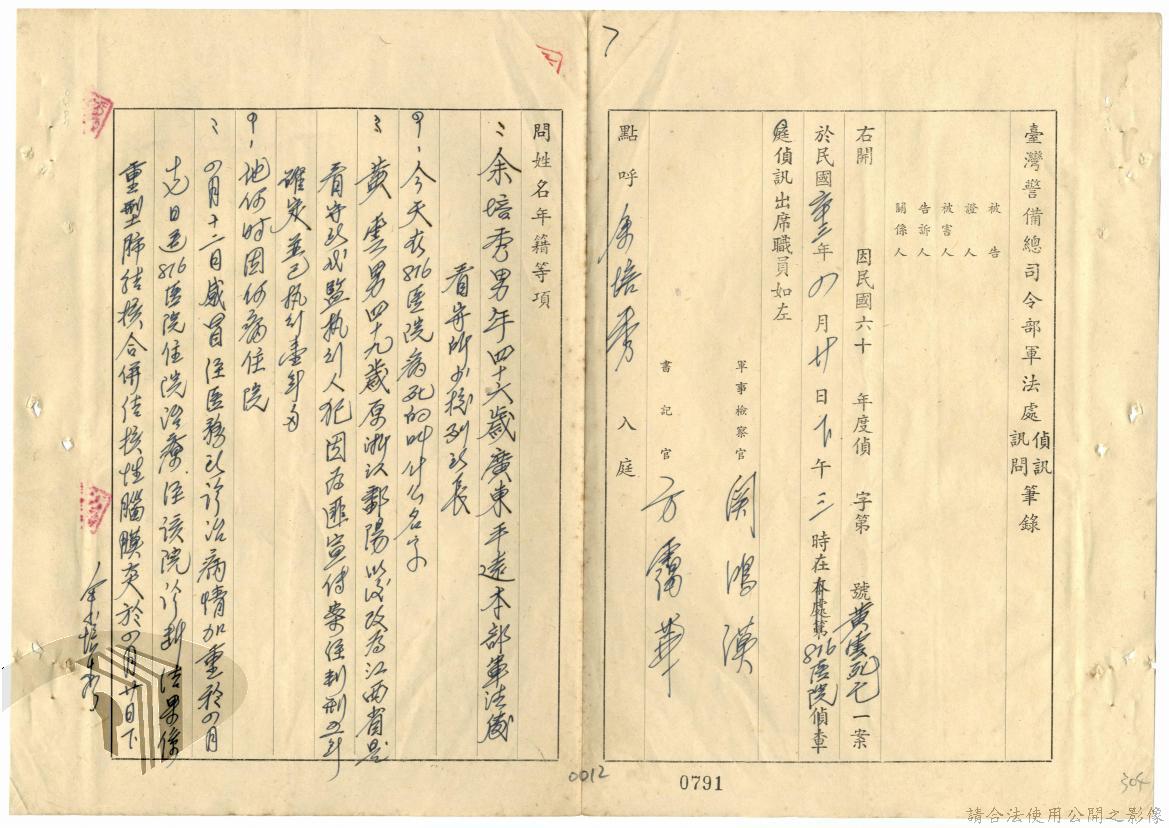 臺灣警備總司令部軍法處偵訊訊問筆錄
被告
證人
被害人
告訴人
關係人
右開 因民國六十 年度偵 字第 號黃雲死亡一案
於民國 年四月廿日下午三時在本處第816医院偵查
庭偵訊出席職員如左
軍事檢察官 關鴻漢
書記官 方霭華
點呼 余培秀 入庭
問姓名年籍等項
余培秀男年四十六歲廣東平遠本部軍法處
看守所少校列政長
今天在816医院病死的叫什么名字
黃雲男四十九歲原浙江鄱陽以後改为江西省是
看守所 監執行人犯因为匪宣传案经判刑五年
確定並已執行壹年多
他何时因何病住院
四月十二日感冒经医務所诊治病情加重於四月
日送816医院住院治療经该院诊断结果係
重型肺结核合併结核性腦膜炎於四月廿日下
余培秀
0012
0791
304
請合法使用公開之影像